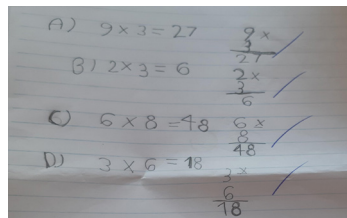 A) 9 × 3 = 27
9 ×
3
27
B) 2 × 3 = 6
2 ×
3
6
C) 6 × 8 = 48
6 ×
8
48
D) 3 × 6 = 18
3 ×
6
18